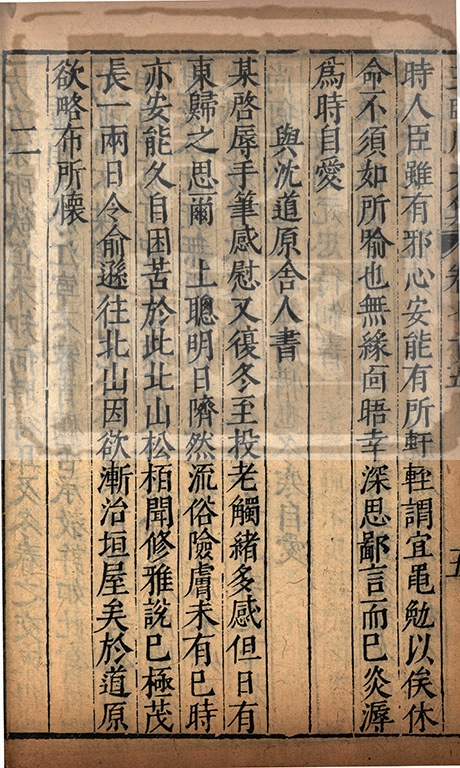 時人臣雖有邪心安能有所軒輊謂宜黽勉以俟休
命不須如所喻也無緣面晤幸深思鄙言而已炎溽
為時自愛
與沈道原舍人書
某啓辱手筆感慰又復冬至投老觸緒多感但日有
東歸之思爾上聰明日隮然流俗險膚未有已時
亦安能久自困苦於此北山松栢聞修雅說已極茂
長一兩日令俞遜往北山因欲漸治垣屋矣於道原
欲略布所懷
二